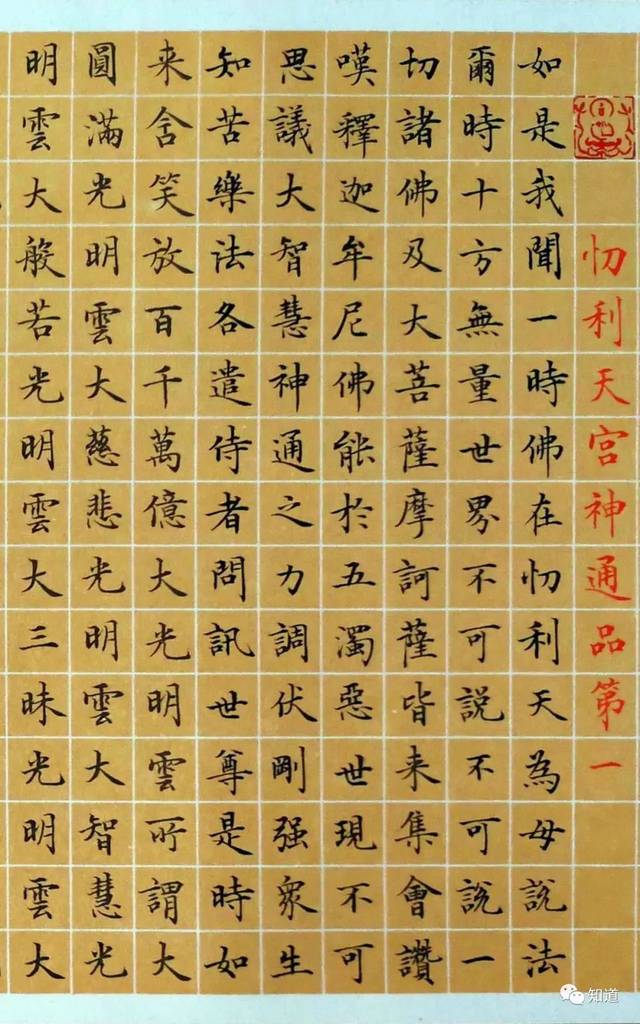 忉利天宮神通品第一
如是我聞一時佛在忉利天為母說法
爾時十方無量世界不可說不可說一
切諸佛及大菩薩摩訶薩皆来集會讚
嘆釋迦牟尼佛能於五濁惡世現不可
思議大智慧神通之力調伏剛强衆生
知苦樂法各遣侍者問訊世尊是時如
来含笑放百千萬億大光明雲所謂大
圓滿光明雲大慈悲光明雲大智慧光
明雲大般若光明雲大三昧光明雲大
知道